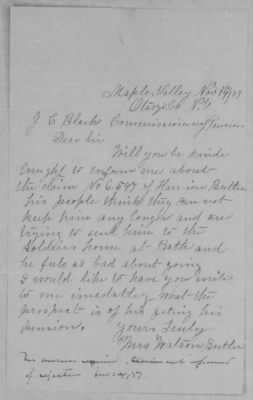 Maple Valley Nov 19/87
Otsego Co N.Y.
J C Black Commissioner of Pension
Dear Sir
Will you be kinde
enught to enform me about
the claim No 6,547 of Harrison Butler
his people thinks they can not
keep him any longer and are
trying to send him to the
Soldiers home at Bath and
he feels so bad about going
I would like to have you write
to me imedatley what the
prospect is of his geting his
pension.
Yours Truly
Mrs Watson Butler
No answer required
of rejection